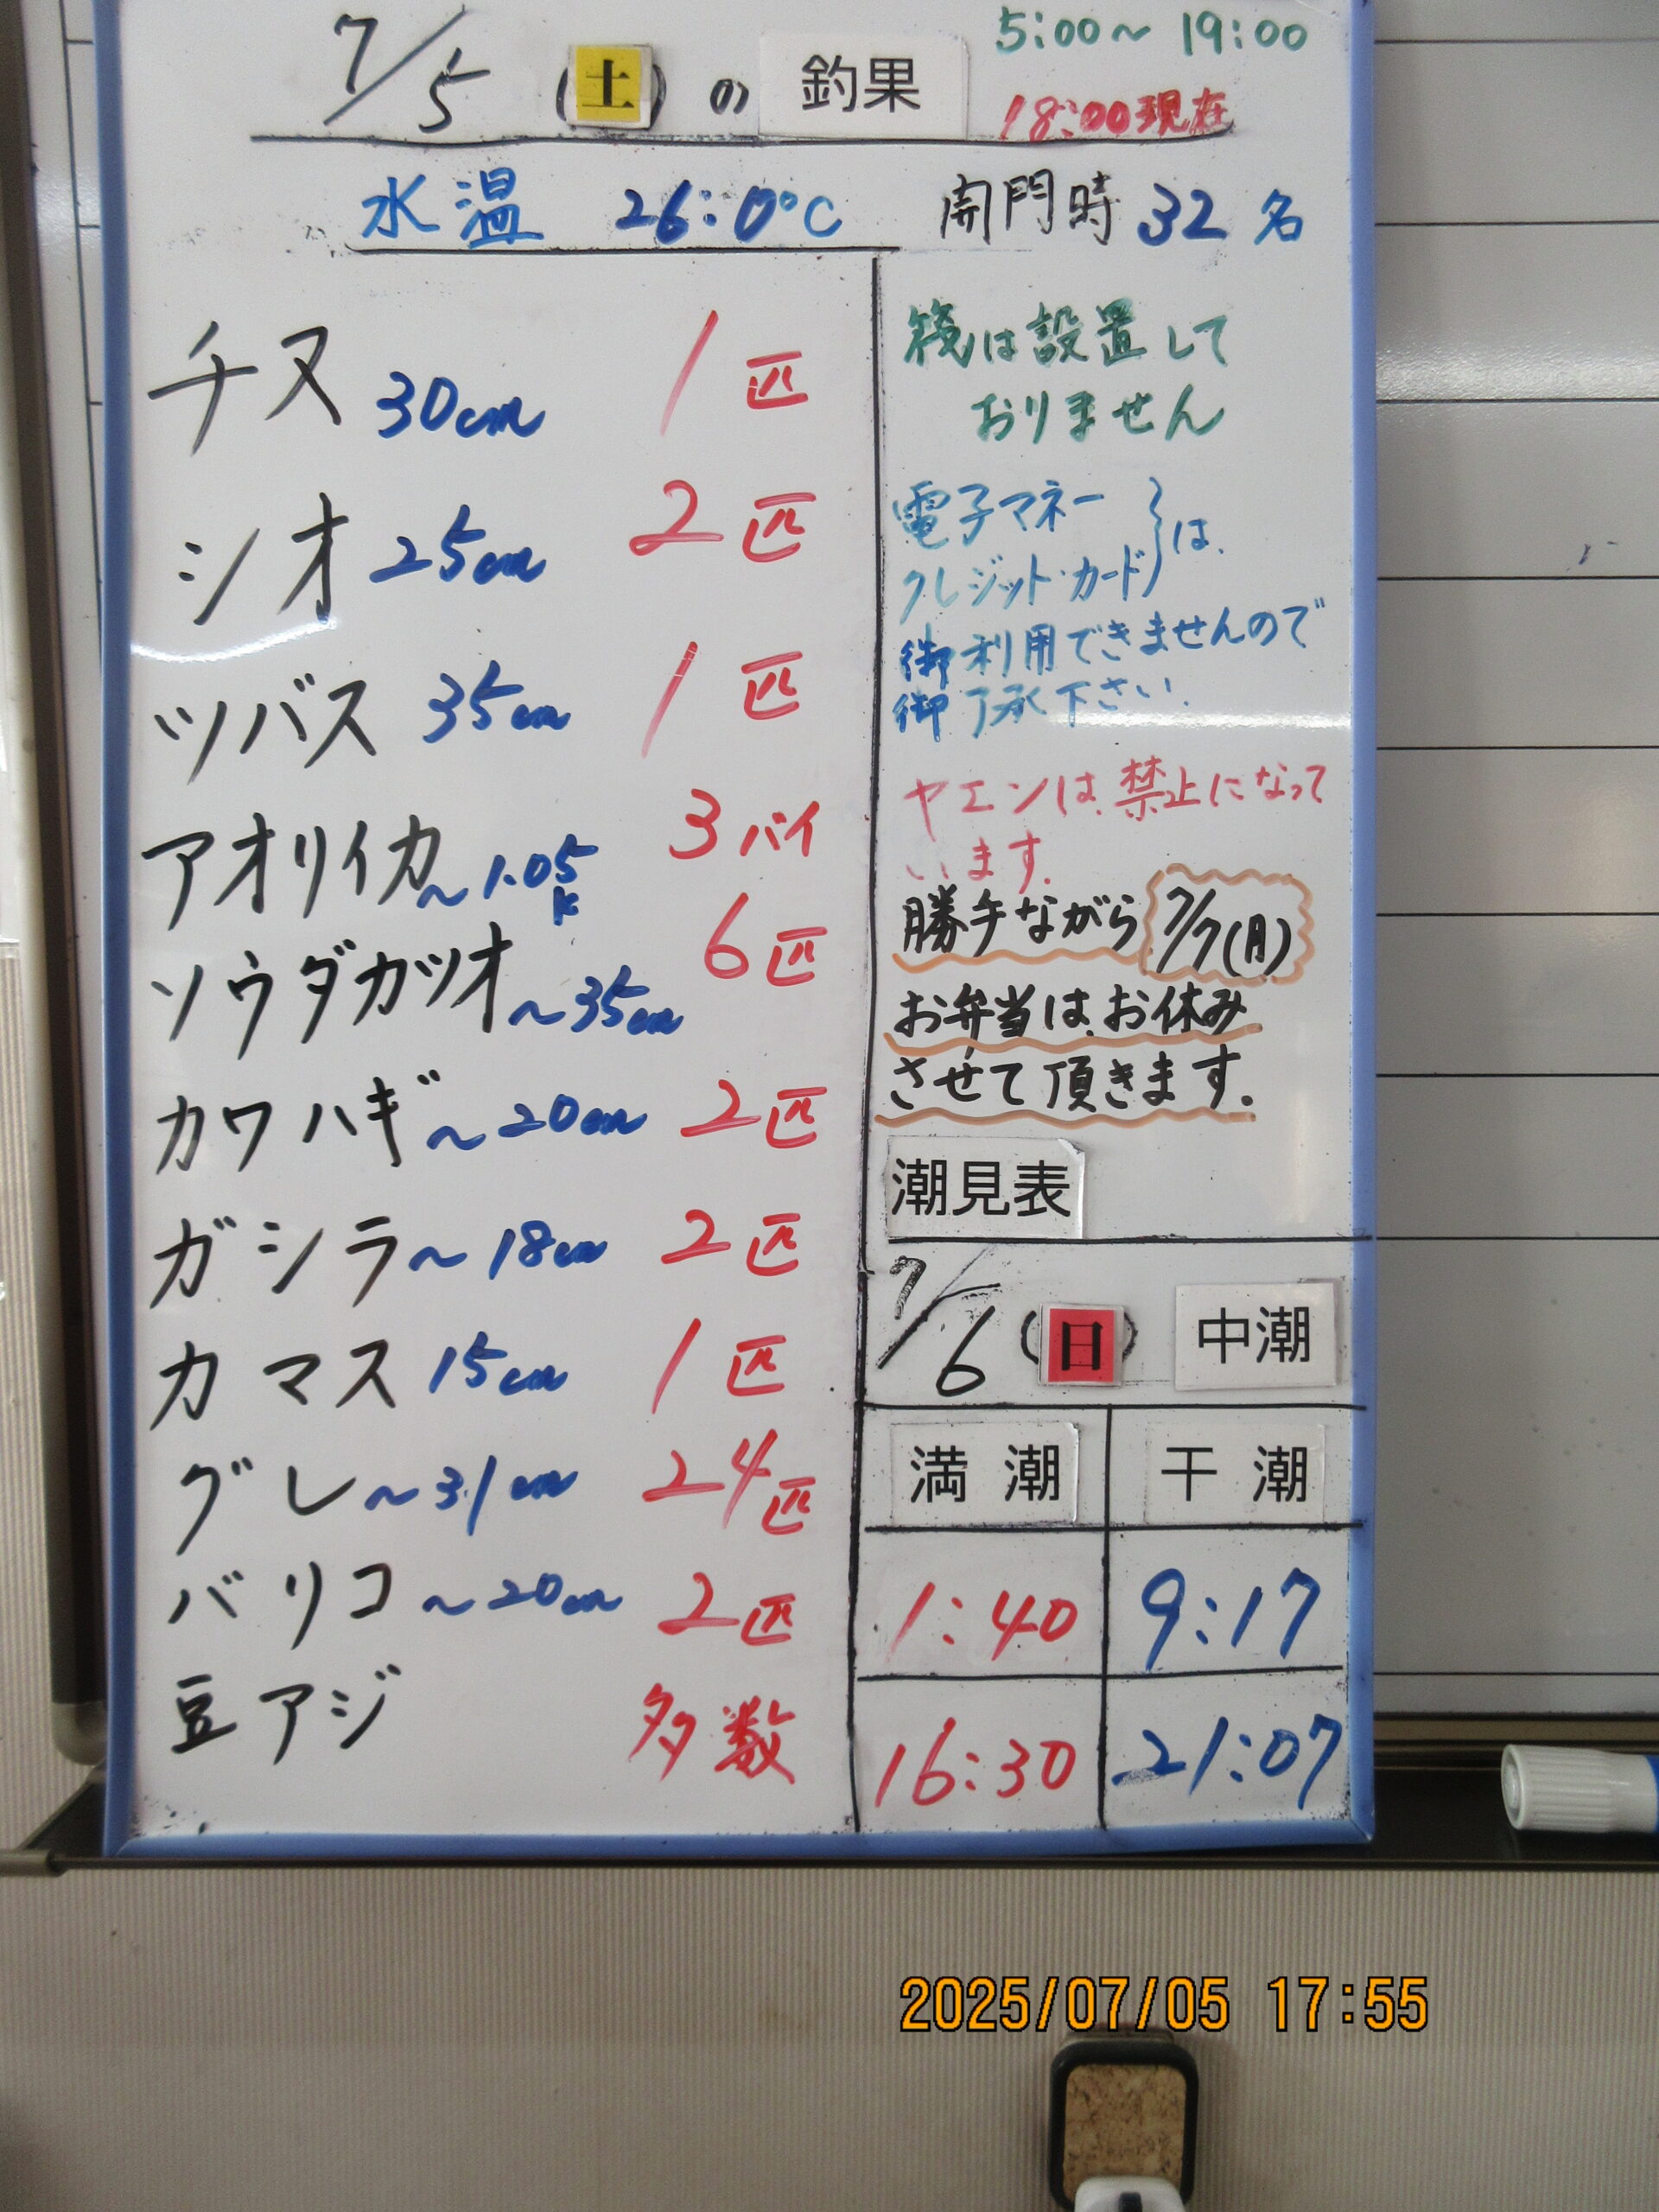 7/5 (土) の 釣果
5:00~19:00
18:00現在
水温 26:0℃ 開門時 32名
チヌ 30cm 1匹
シオ 25cm 2匹
ツバス 35cm 1匹
アオリイカ ~1.05k 3バイ
ソウダカツオ ~35cm 6匹
カワハギ ~20cm 2匹
ガシラ ~18cm 2匹
カマス 15cm 1匹
グレ ~31cm 24匹
バリコ ~20cm 2匹
豆アジ 多数
筏は設置して
おりません
電子マネー
クレジット・カード}は、
御利用できませんので
御了承下さい.
ヤエンは、禁止になって
います.
勝手ながら 7/7(月)
お弁当は、お休み
させて頂きます.
潮見表
7/6 (日) 中潮
満潮 干潮
1:40 9:17
16:30 21:07
2025/07/05 17:55